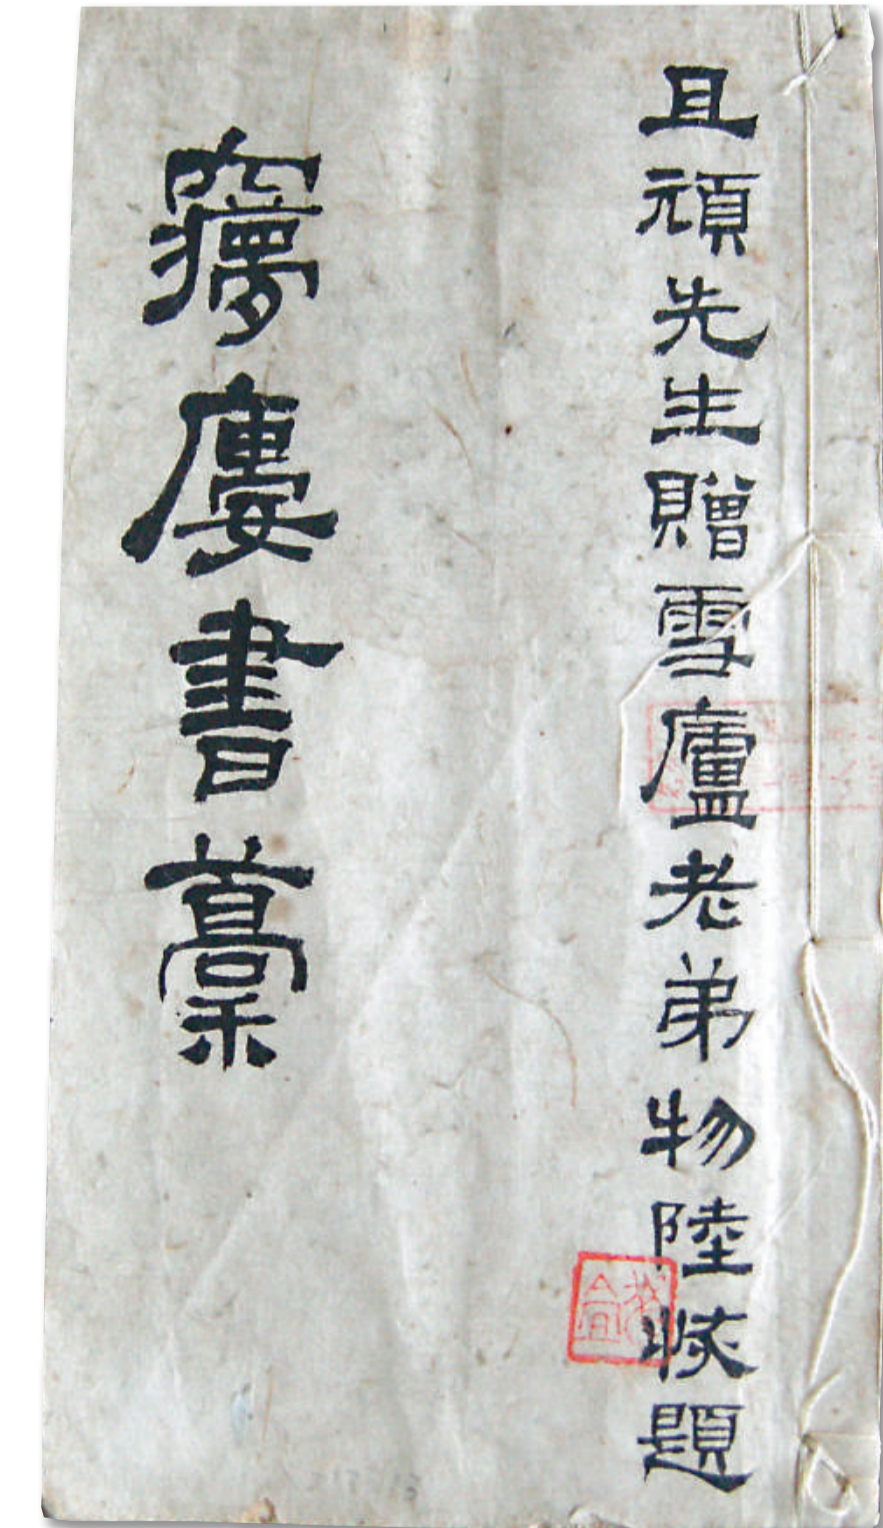 且頑先生贈雪廬老弟物陸恢題
㝱廔書藁